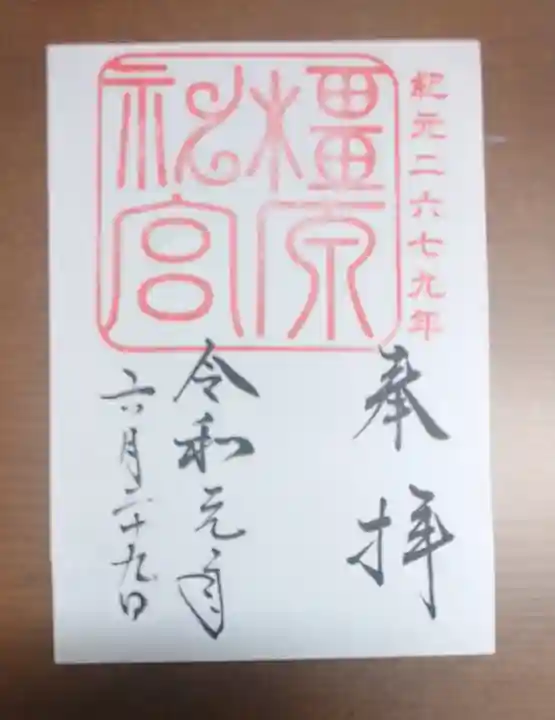 紀元二六七九年
橿原
神宮
奉拝
令和元年
六月二十九日